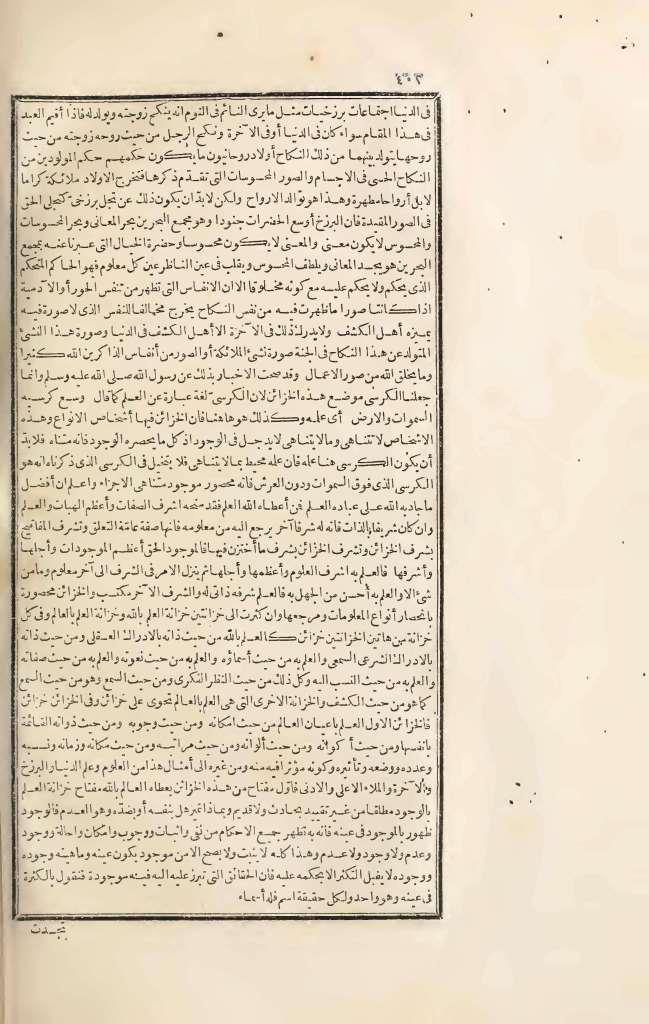 ٤٠٣
فى الدنيا اجتماعات برزخيات مثل ما يرى النائم فى النوم انه ينكح زوجته ويولد له فاذا أقيم العبد
فى هذا المقام سواء كان فى الدنيا أو فى الآخرة ونكح الرجل من حيث روحه زوجته من حيث
روحها يتولد بينهما من ذلك النكاح أولاد روحانيون ما يكون حكمهم حكم المولودين من
النكاح الحسى فى الاجسام والصور المحسوسات التى تقدم ذكرها فتخرج الاولاد ملائكة كراما
لا بل أرواحا مطهرة وهذا هو توالد الارواح ولكن لابد أن يكون ذلك عن تجل برزخى كتجلى الحق
فى الصور المقيدة فان البرزخ أوسع الحضرات جنودا وهو مجمع البحرين بحر المعانى وبحر المحسوسات
والمحسوس لا يكون معنى والمعنى لا يكون محسوسا وحضرة الخيال التى عبرنا عنه بمجمع
البحرين هو يجسد المعانى ويلطف المحسوس ويقلب فى عين الناظر عين كل معلوم فهو الحاكم المتحكم
الذى يحكم ولا يحكم عليه مع كونه مخلوقا الا ان الانفاس التى تظهر من تنفس الحور أو الآدمية
اذا كانتا صورا ما ظهرت فيه من نفس النكاح يخرج مخالفا للنفس الذى لا صورة فيه
يميزه أهل الكشف ولا يدرك ذلك فى الآخرة الا أهل الكشف فى الدنيا وصورة هذا النشئ
المتولد عن هذا النكاح فى الجنة صورة نشئ الملائكة أو الصور من أنفاس الذاكرين الله كثيرا
وما يخلق الله من صور الاعمال وقد صحت الاخبار بذلك عن رسول الله صلى الله عليه وسلم وانما
جعلنا الكرسى موضع هذه الخزائن لان الكرسى لغة عبارة عن العلم كما قال وسع كرسيه
السموات والارض أى علمه وكذلك هو ها هنا فان الخزائن فيها أشخاص الانواع وهذه
الاشخاص لا تتناهى وما لا يتناهى لا يدخل فى الوجود اذ كل ما يحصره الوجود فانه متناه فلا بد
أن يكون الكرسى هنا علمه فان علمه محيط بما لا يتناهى فلا يتخيل فى الكرسى الذى ذكرناه انه هو
الكرسى الذى فوق السموات ودون العرش فانه محصور موجود متناهى الاجزاء واعلم ان أفضل
ما جاد به الله على عباده العلم فمن أعطاه الله العلم فقد منحه اشرف الصفات وأعظم الهبات والعلم
وان كان شريفا بالذات فانه له شرفا آخر يرجع اليه من معلومه فانها صفة عامة التعلق وتشرف المفاتيح
بشرف الخزائن وتشرف الخزائن بشرف ما أختزن فيها فالموجود الحق أعظم الموجودات وأجلها
وأشرفها فالعلم به اشرف العلوم وأعظمها وأجلها ثم ينزل الامر فى الشرف الى آخر معلوم وما من
شئ الا والعلم به أحسن من الجهل به فالعلم شرفه ذاتى له والشرف الآخر مكتسب والخزائن محصورة
بانحصار أنواع المعلومات ومرجعها وان كثرت الى خزانتين خزانة العلم بالله وخزانة العلم بالعالم وفى كل
خزانة من هاتين الخزانتين خزائن كالعلم بالله من حيث ذاته بالادراك العقلى ومن حيث ذاته
بالادراك الشرعى السمعى والعلم به من حيث أسمائه والعلم به من حيث نعوته والعلم به من حيث صفاته
والعلم به من حيث النسب اليه وكل ذلك من حيث النظر الفكرى ومن حيث السمع وهو من حيث السمع
كما هو من حيث الكشف والخزانة الاخرى التى هى العلم بالعالم تحوى على خزائن وفى الخزائن خزائن
فالخزائن الاول العلم باعيان العالم من حيث امكانه ومن حيث وجوبه ومن حيث ذواته القائمة
بانفسها ومن حيث أكوانه ومن حيث ألوانه ومن حيث مراتبه ومن حيث مكانه وزمانه ونسبه
وعدده ووضعه وتأثيره وكونه مؤثرا فيه منه ومن غيره الى أمثال هذا من العلوم وعلم الدنيا والبرزخ
والآخرة والملاء الاعلى والادنى فاول مفتاح من هذه الخزائن يعطاه العالم بالله مفتاح خزانة العلم
بالوجود مطلقا من غير تقييد بحادث ولا قديم وبماذا تميز هل بنفسه أو بضده وهو العدم فالوجود
ظهور بالموجود فى عينه فانه به تظهر جميع الاحكام من نفى واثبات ووجوب وامكان واحالة ووجود
وعدم ولا وجود ولا عدم وهذا كله لا يثبت ولا يصح الا من موجود يكون عينه وماهيته وجوده
ووجوده لا يقبل التكثر الا بحكمه عليه فان الحقائق التى تبرز عليه اليه فيه موجودة فنقول بالكثرة
فى عينه وهو واحد ولكل حقيقة اسم فله أسماء
تجددت